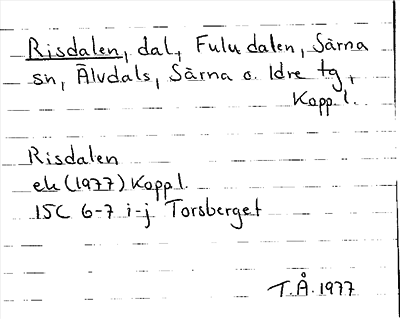 Risdalen, dal, Fuludalen, Särna
sn, Älvdals, Särna o. Idre tg,
Kopp. l.
Risdalen
ek (1977) Kopp l.
15C 6-7 i-j Torsberget
T.Å. 1977